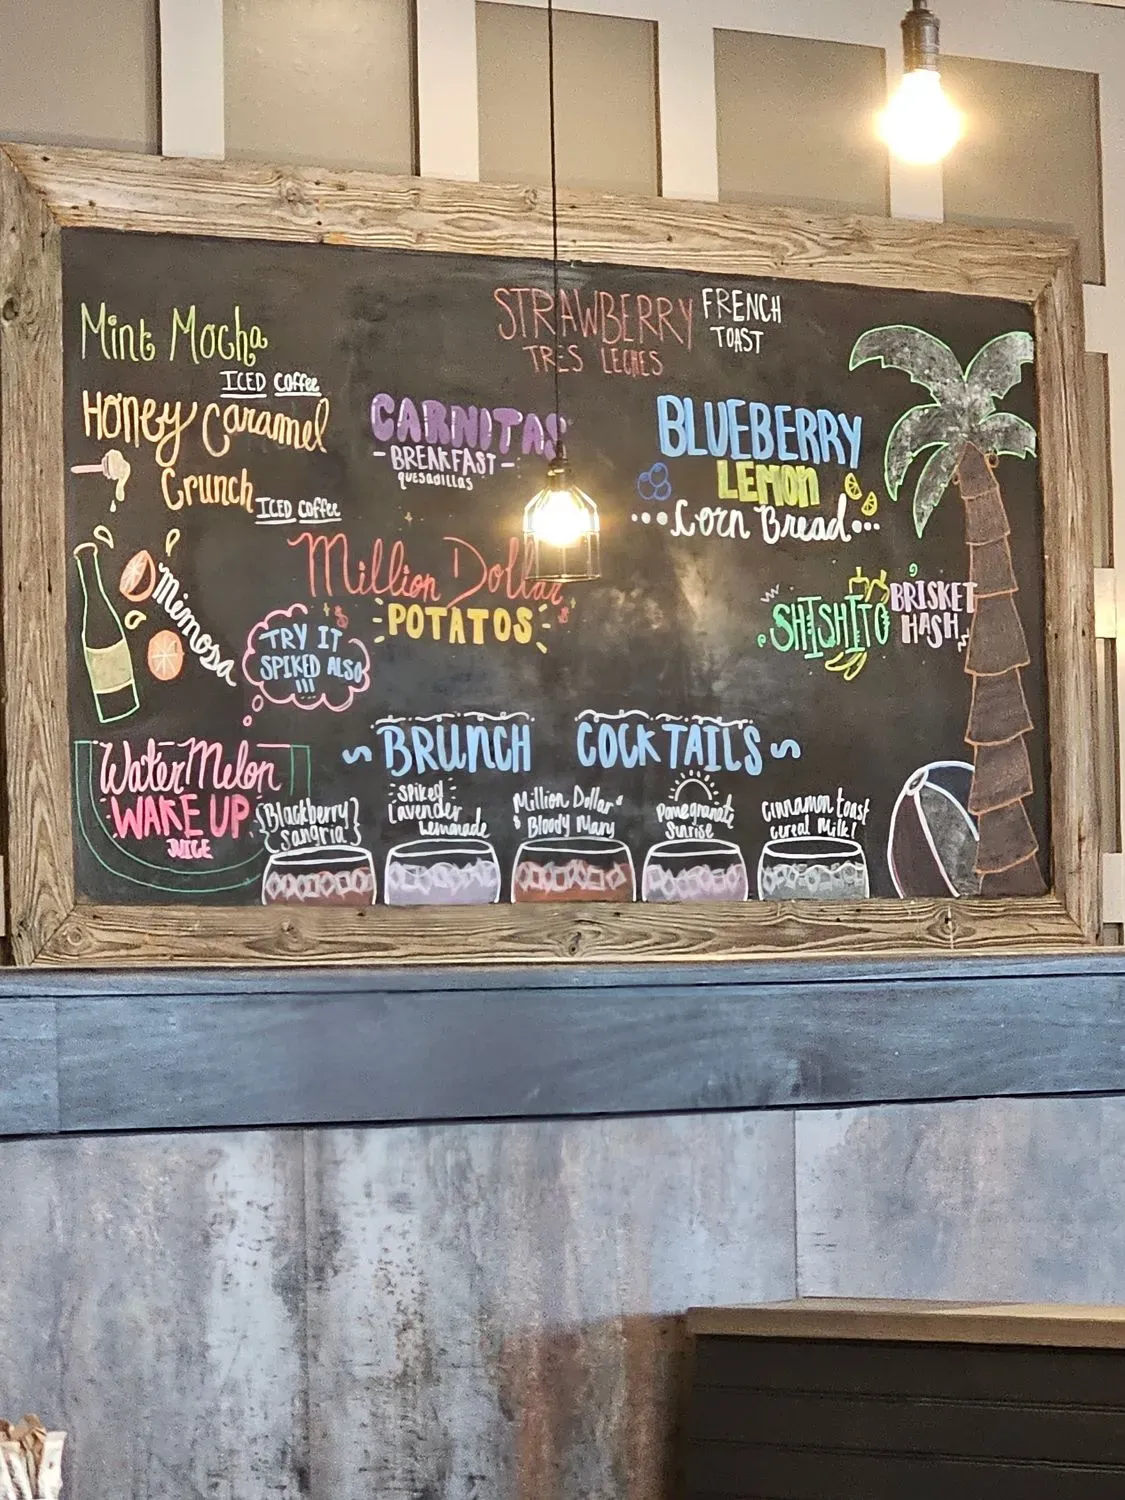 Mint Mocha
ICED Coffee
Honey Caramel
Crunch
ICED Coffee
Mimosa
TRY IT
SPIKED ALSO
!!!
WaterMelon
WAKE UP
JUICE
STRAWBERRY FRENCH
TRES LECHES TOAST
CARNITAS
-BREAKFAST-
QUESADILLAS
Million Dollar
POTATOS
BLUEBERRY
LEMON
...Corn Bread...
SHISHITO BRISKET
HASH
~BRUNCH COCKTAILS~
{Blackberry}
{Sangria}
Spiked
Lavender
Lemonade
Million Dollar
Bloody Mary
Pomegranate
Sunrise
Cinnamon toast
Cereal Milk!